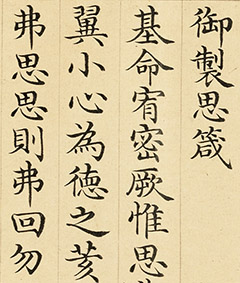 御製思箴
基命宥密厥惟思
翼小心為德之荄
弗思思則弗回勿